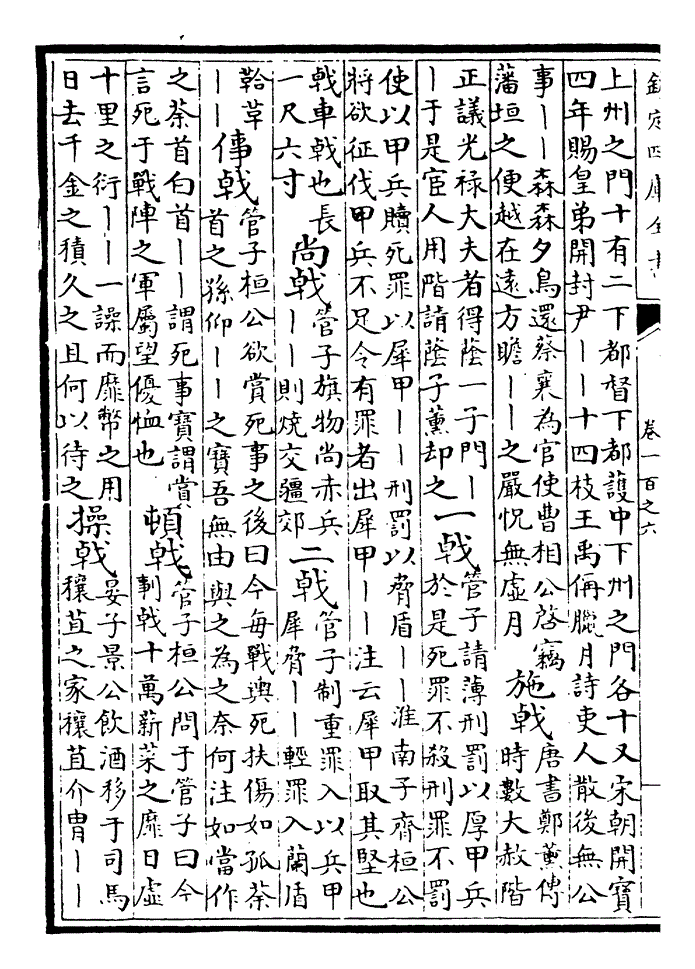 欽定四庫全書
卷一百之六
上州之門十有二下都督下都護中下州之門各十又宋朝開寶
四年賜皇弟開封尹丨丨十四枝王禹偁臘月詩吏人散後無公
事丨丨森森夕鳥還蔡襄為官使曹相公啓竊
藩垣之便越在遠方瞻丨丨之嚴怳無虛月
施㦸
唐書鄭薫傳
時數大赦階
正議光禄大夫者得蔭一子門丨
丨于是宦人用階請蔭子薫却之
一㦸
管子請薄刑罰以厚甲兵
於是死罪不殺刑罪不罰
使以甲兵贖死罪以犀甲丨丨刑罰以脅盾丨丨淮南子齊桓公
將欲征伐甲兵不足令有罪者出犀甲丨丨注云犀甲取其堅也
㦸車㦸也長
一尺六寸
尚㦸
管子旗物尚赤兵
丨丨則燒交疆郊
二㦸
管子制重罪入以兵甲
犀脅丨丨輕罪入蘭盾
鞈草
丨丨
傳㦸
管子桓公欲賞死事之後曰今每戰輿死扶傷如孤荼
首之孫仰丨丨之寶吾無由與之為之奈何注如當作
之荼首白首丨丨謂死事寶謂賞
言死于戰陣之軍屬望優恤也
頓㦸
管子桓公問于管子曰今
剚㦸十萬薪菜之靡日虛
十里之衍丨丨一譟而靡幣之用
日去千金之積久之且何以待之
操㦸
晏子景公飲酒移于司馬
穰苴之家穰苴介胄丨丨